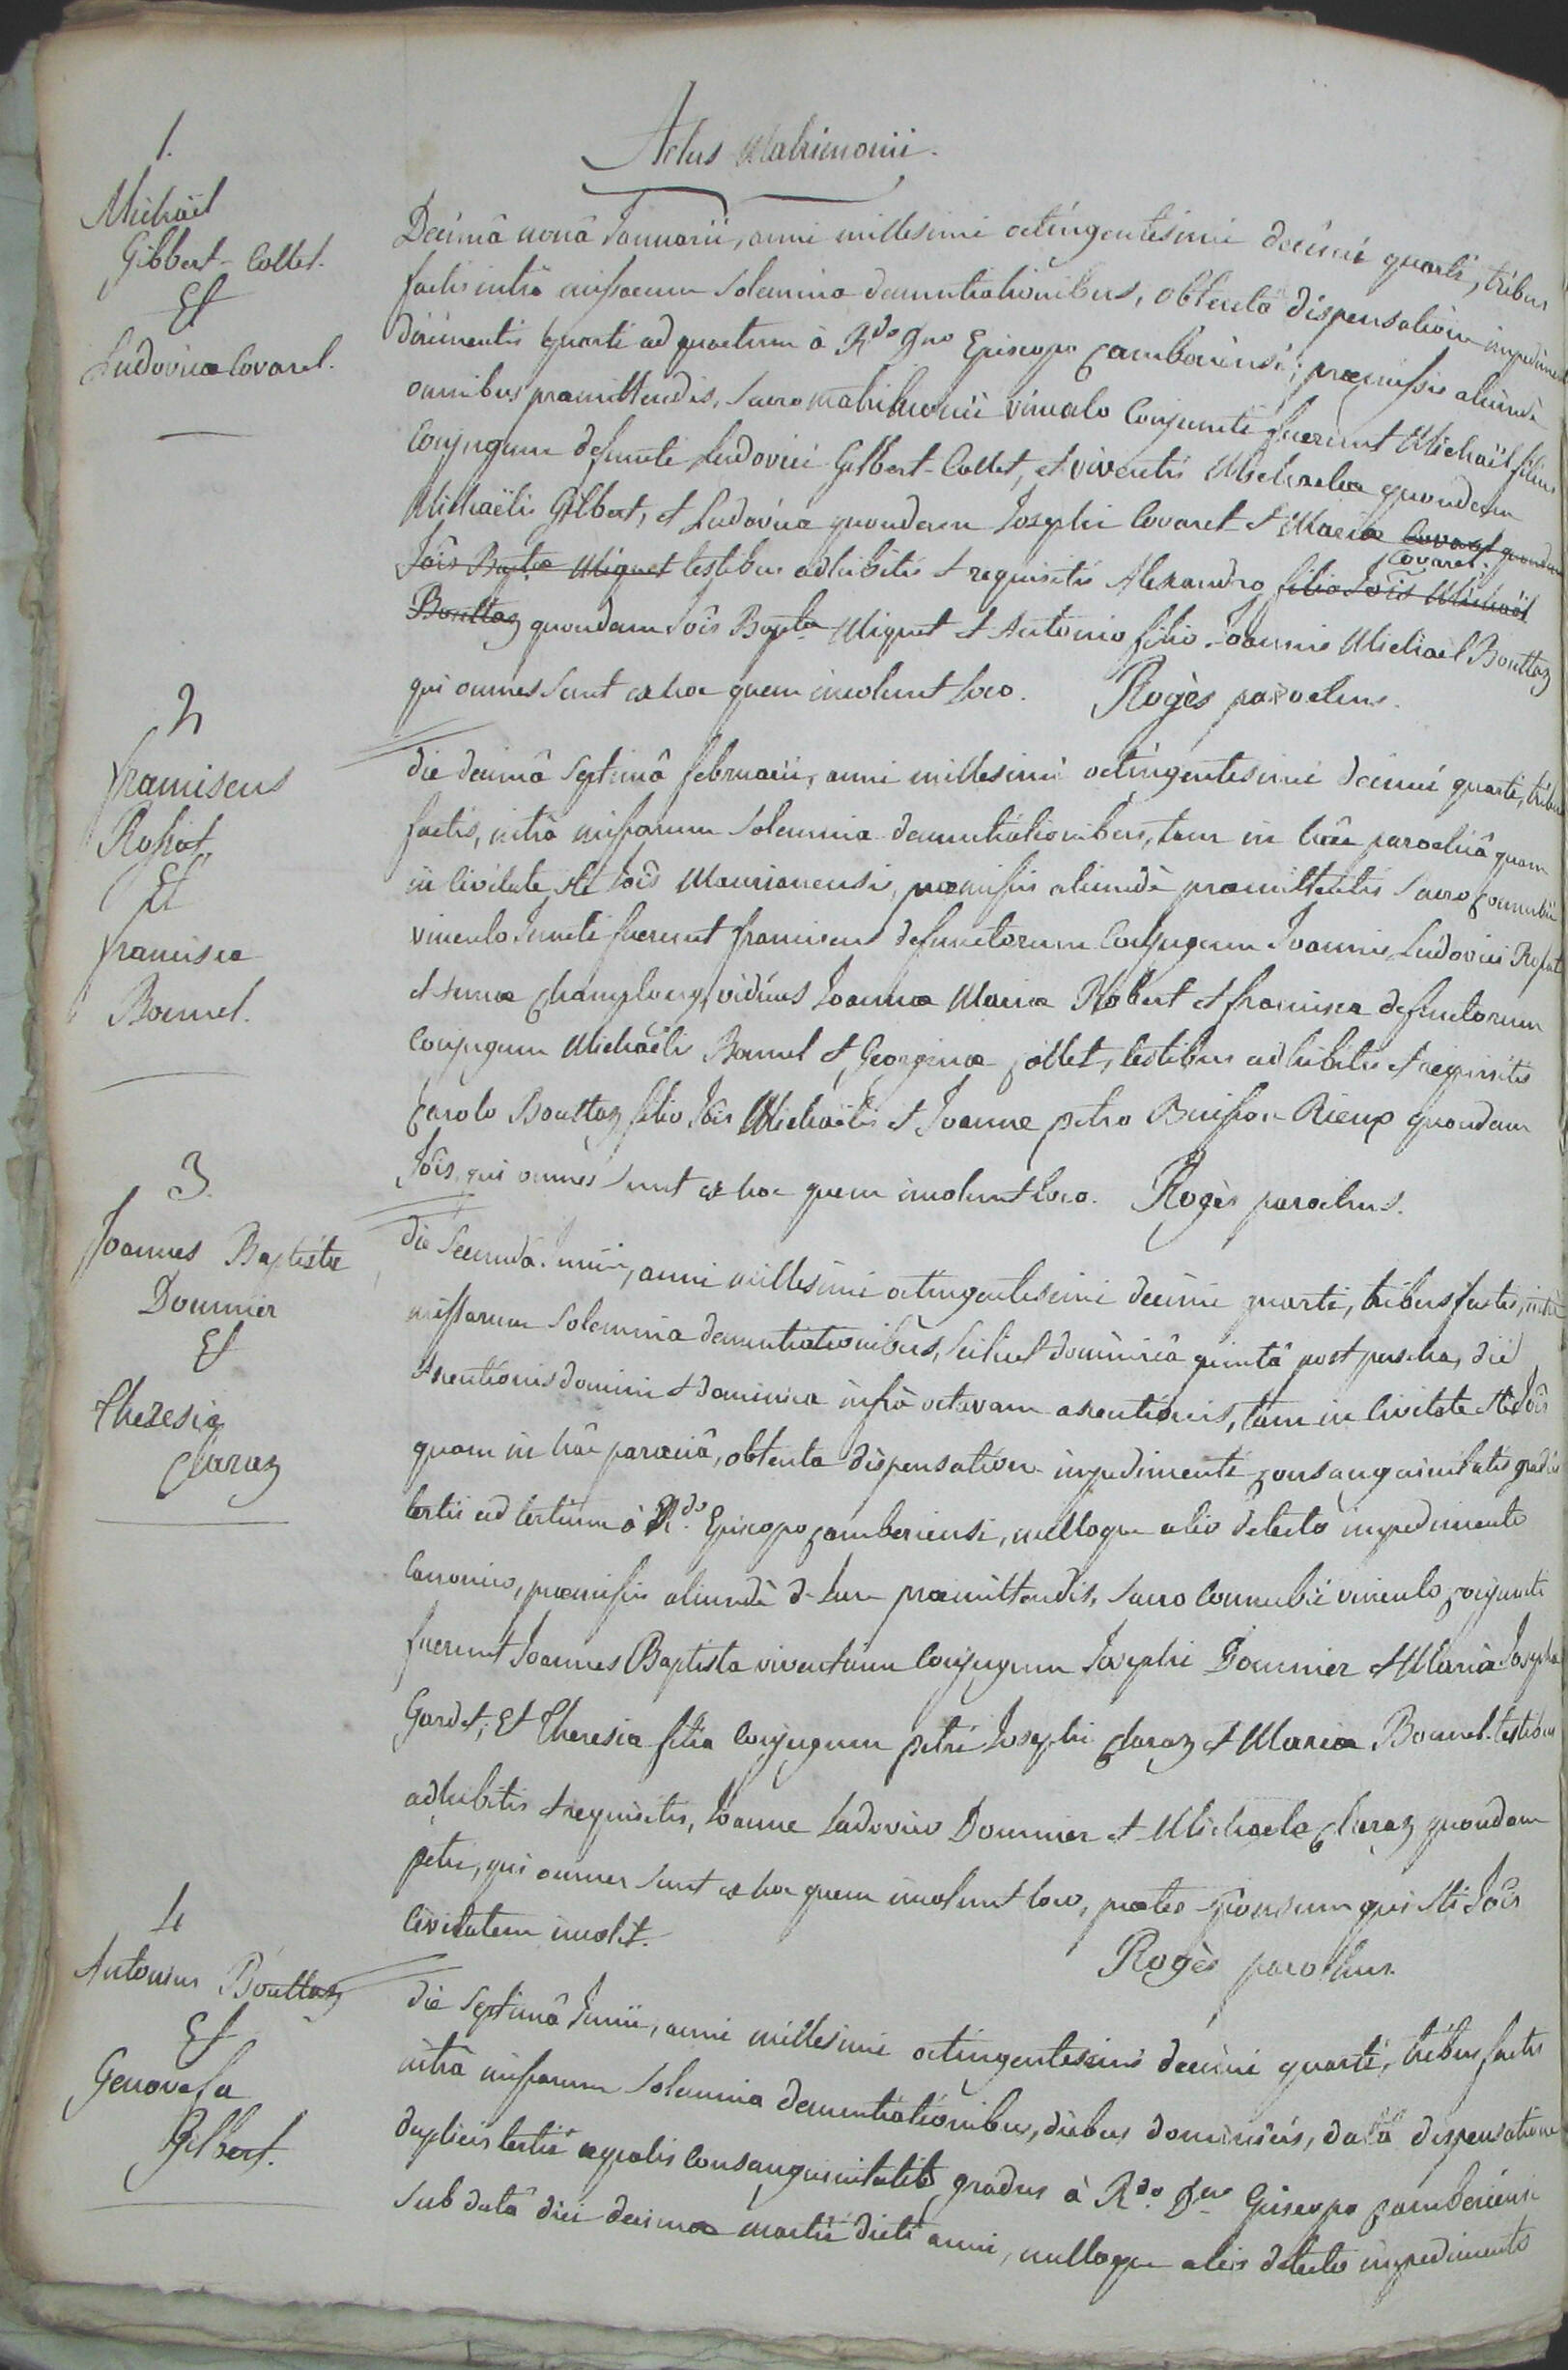 Actus Matrimonii.
1.
Michaël
Gilbert-Collet.
Et
Ludovica Covarel.
Decimâ nonâ Januarii, anni millesimi octingentesimi decimi quarti, tribus
factis intrà missarum Solemnia denuntiationibus, obtentâ dispensatione impedimenti
dirimentis quarti ad quartum à Rdo Dno Episcopo Camberiensi; præmissis aliundè
omnibus præmittendis, Sacro matrimonii vinculo Conjuncti fuerunt Michaël filius
Conjugum defuncti Ludovici Gilbert-Collet, et viventis Michaelæ quondam
Michaëlis Gilbert, et Ludovica quondam Josephi Covarel et Mariæ Covarel quondam
Covarel.
Jôis Baptæ Miquet testibus adhibitis et requisitis Alexandro filio Jôis Michaël
Bouttaz quondam Jôis Baptæ Miquet et Antonio filio Joannis Michaël Bouttaz
qui omnes sunt ex hoc quem incolunt loco. Rogès parochus.
2
franciscus
Rossat
Et
francisca
Bonnel.
die decimâ Septimâ februarii, anni millesimi octingentesimi decimi quarti, tribus
factis, intrà missarum Solemnia denuntiationibus, tam in hâc parochiâ quam
in Civitate Sti Jôis Maurianensis, præmissis aliundè præmittendis Sacro Connubii
vinculo Juncti fuerunt franciscus defunctorum Conjugum Joannis Ludovici Rossat
et Annæ Champlong, viduus Joannæ Mariæ Robert et francisca defunctorum
Conjugum Michaëlis Bonnel et Georginæ Collet, testibus adhibitis et requisitis
Carolo Bouttaz filio Jôis Michaëlis et Joanne petro Buisson-Rieux quondam
Jôis, qui omnes sunt ex hoc quem incolunt loco. Rogès parochus.
3.
Joannes Baptista
Dommier
Et
Theresia
Claraz
die Secundâ Junii, anni millesimi octingentesimi decimi quarti, tribus factis, intrà
missarum Solemnia denuntiationibus, scilicet dominicâ quintâ post pascha, die
Ascentionis domini et dominica infrà octavam ascentionis, tam in Civitate Sti Jôis
quam in hâc parociâ, obtenta dispensatione impedimenti Consanguinitatis gradûs
tertii ad tertium à Rdo. Episcopo Camberiensi, nulloque alio detecto impedimento
Canonico, præmissis aliundè de Jure præmittendis, Sacro Connubii vinculo Conjuncti
fuerunt Joannes Baptista viventium Conjugum Josephi Dommier et Mariæ Josephæ
Gardet; Et Theresia filia Conjugum petri Josephi Claraz et Mariæ Bonnel. testibus
adhibitis et requisitis, Joanne Ludovico Dommier et Michaele Claraz quondam
petri, qui omnes sunt ex hoc quem incolunt loco, præter sponsum qui Sti Jôis
Civitatem incolit.
Rogès parochus.
4
Antonius Bouttaz
Et
Genovefa
Gilbert.
die Septimâ Junii, anni millesimi octingentesimi decimi quarti, tribus factis
intrà missarum Solemnia denuntiationibus, diebus dominicis, datâ dispensatione
duplicis tertii æqualis Consanguinitatis gradus à Rdo. Dno Episcopo Camberiensi
Sub datâ diei decimæ martii dicti anni, nulloque alio detecto impedimento